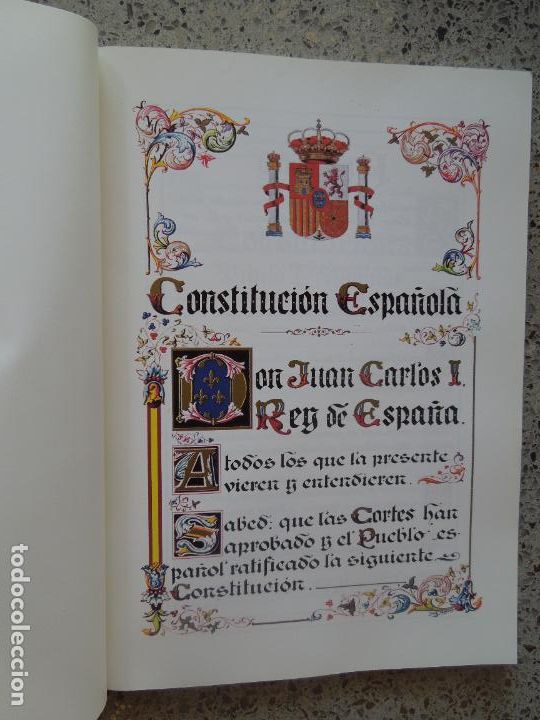 Constitución Española
Don Juan Carlos I.
Rey de España.
A todos los que la presente
vieren y entendieren.
Sabed: que las Cortes han
aprobado y el Pueblo es-
pañol ratificado la siguiente
Constitución.
todocoleccion